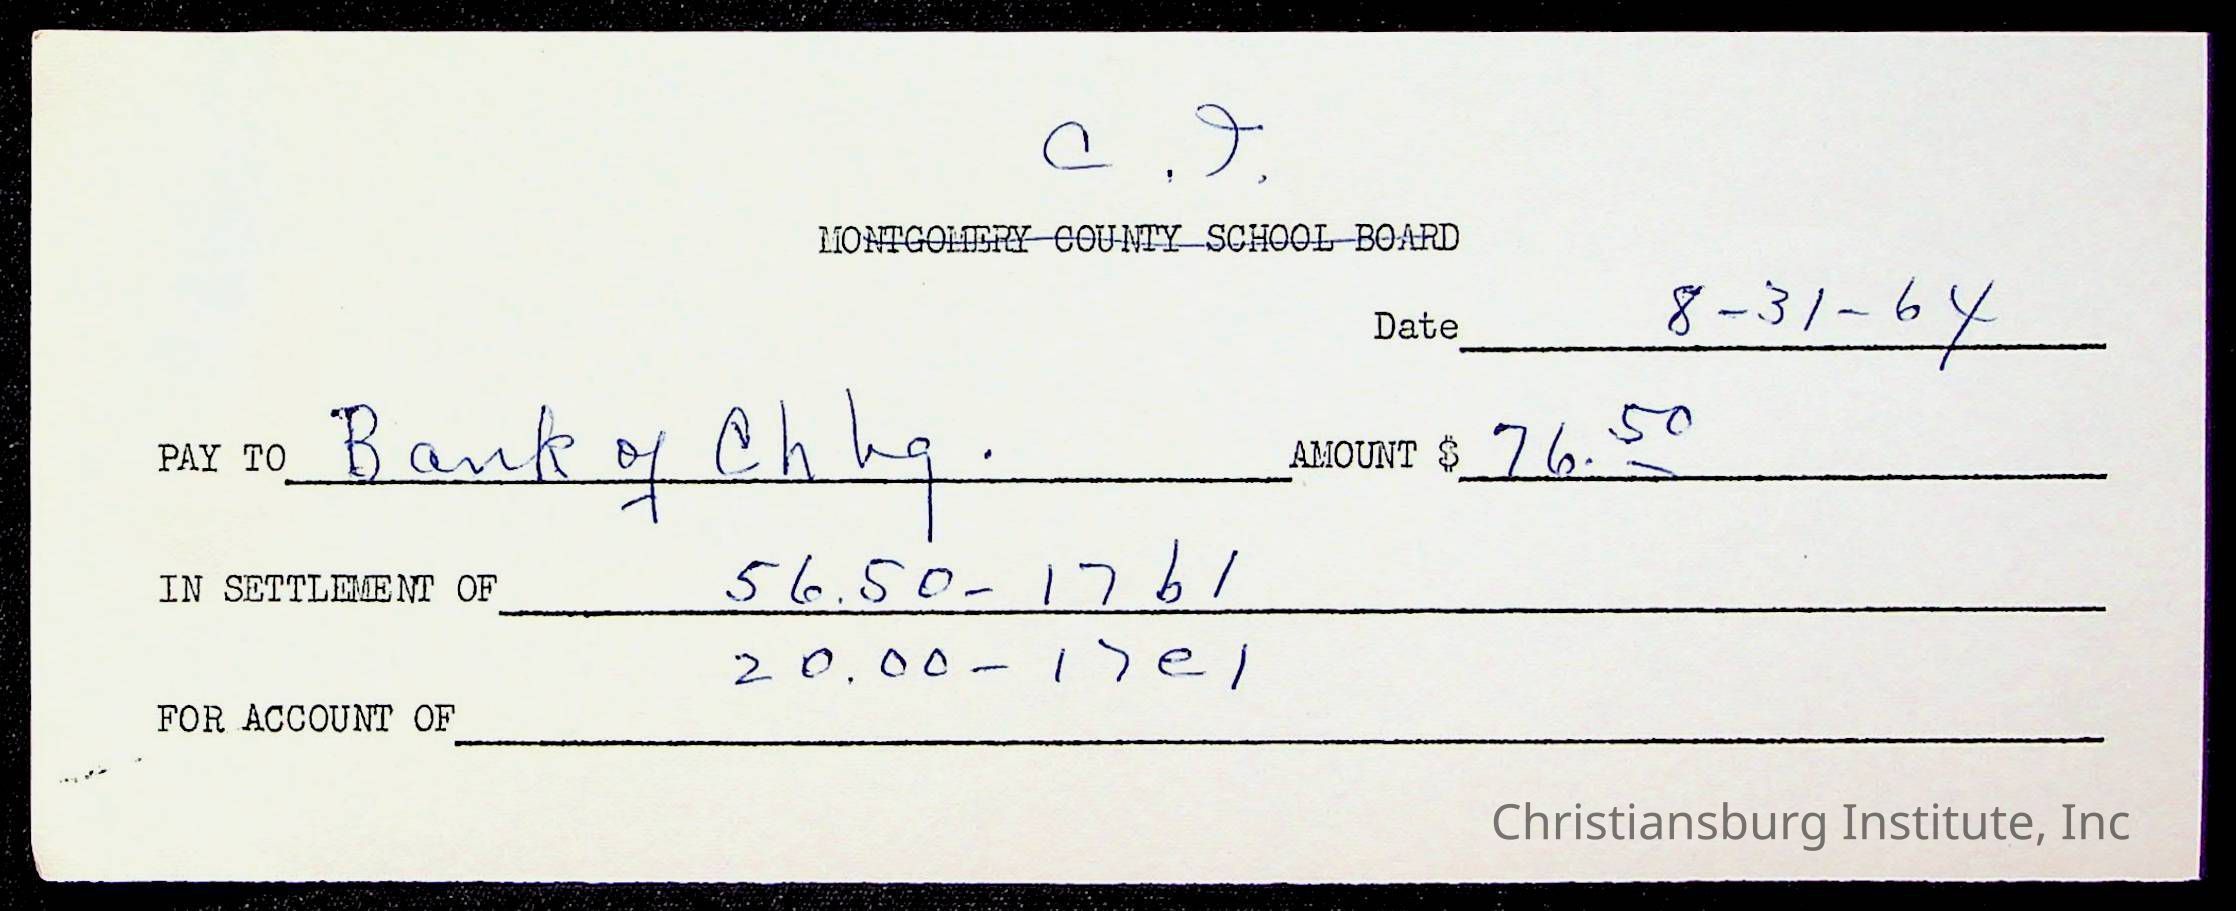 C.I.
MONTGOMERY COUNTY SCHOOL BOARD
Date 8-31-64
PAY TO Bank of Chbg. AMOUNT $ 76.50
IN SETTLEMENT OF 56.50 - 17b1
20.00 - 17e1
FOR ACCOUNT OF
Christiansburg Institute, Inc